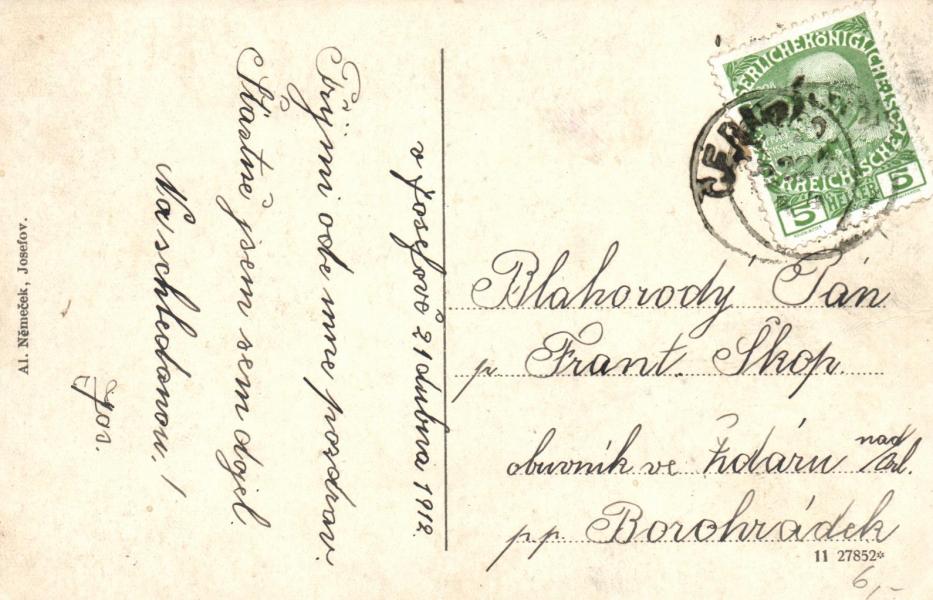 v Josefově 21 dubna 1912.
Přijmi ode mne pozdrav.
Šťastně jsem sem dojel.
Na schledanou!
Jos.
Al. Němeček, Josefov.
KÖNIGLICHE
5 HELLER 5
Blahorodý Pán
p. Frant. Škop.
obuvník ve Žďáru nad Orl.
pp. Borohrádek
11 27852*
6,-